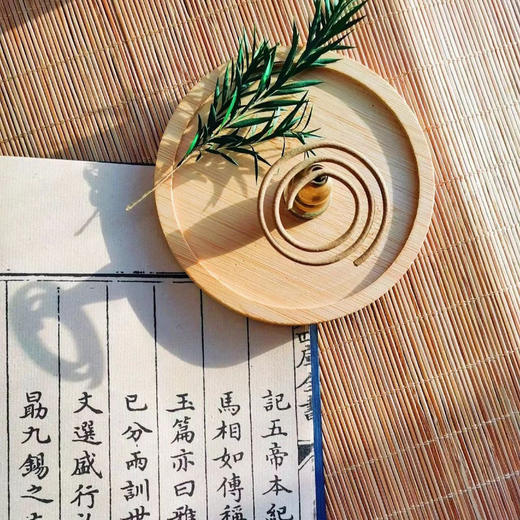 庫全書
記五帝本紀
馬相如傳稱
玉篇亦曰雅
已分兩訓世
文選盛行
勗九錫之